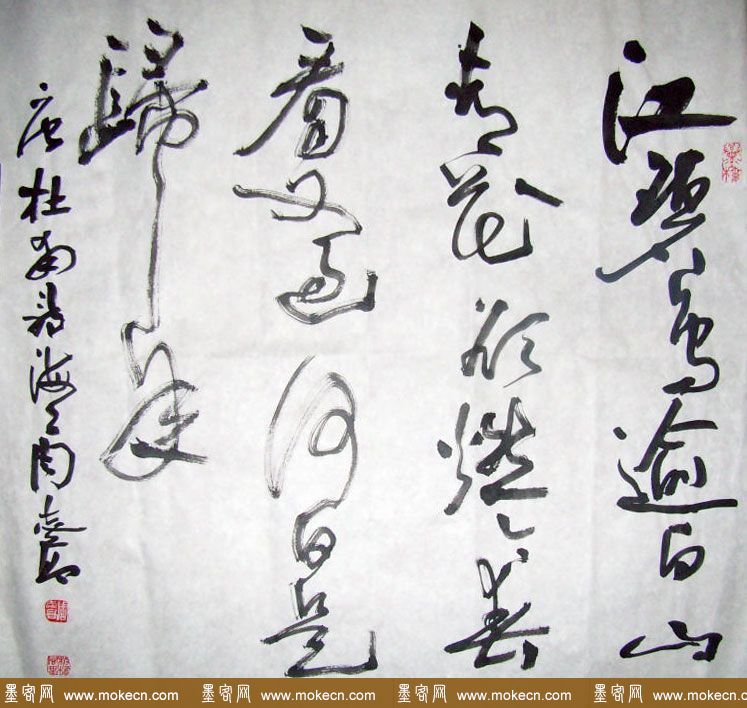 江碧鳥逾白山
青花欲燃今春
看又過何日是
歸年
唐杜甫詩海上周
墨客网 www.mokecn.com 墨客网 www.mokecn.com 墨客网 www.mokecn.com 墨客网 www.mokecn.com